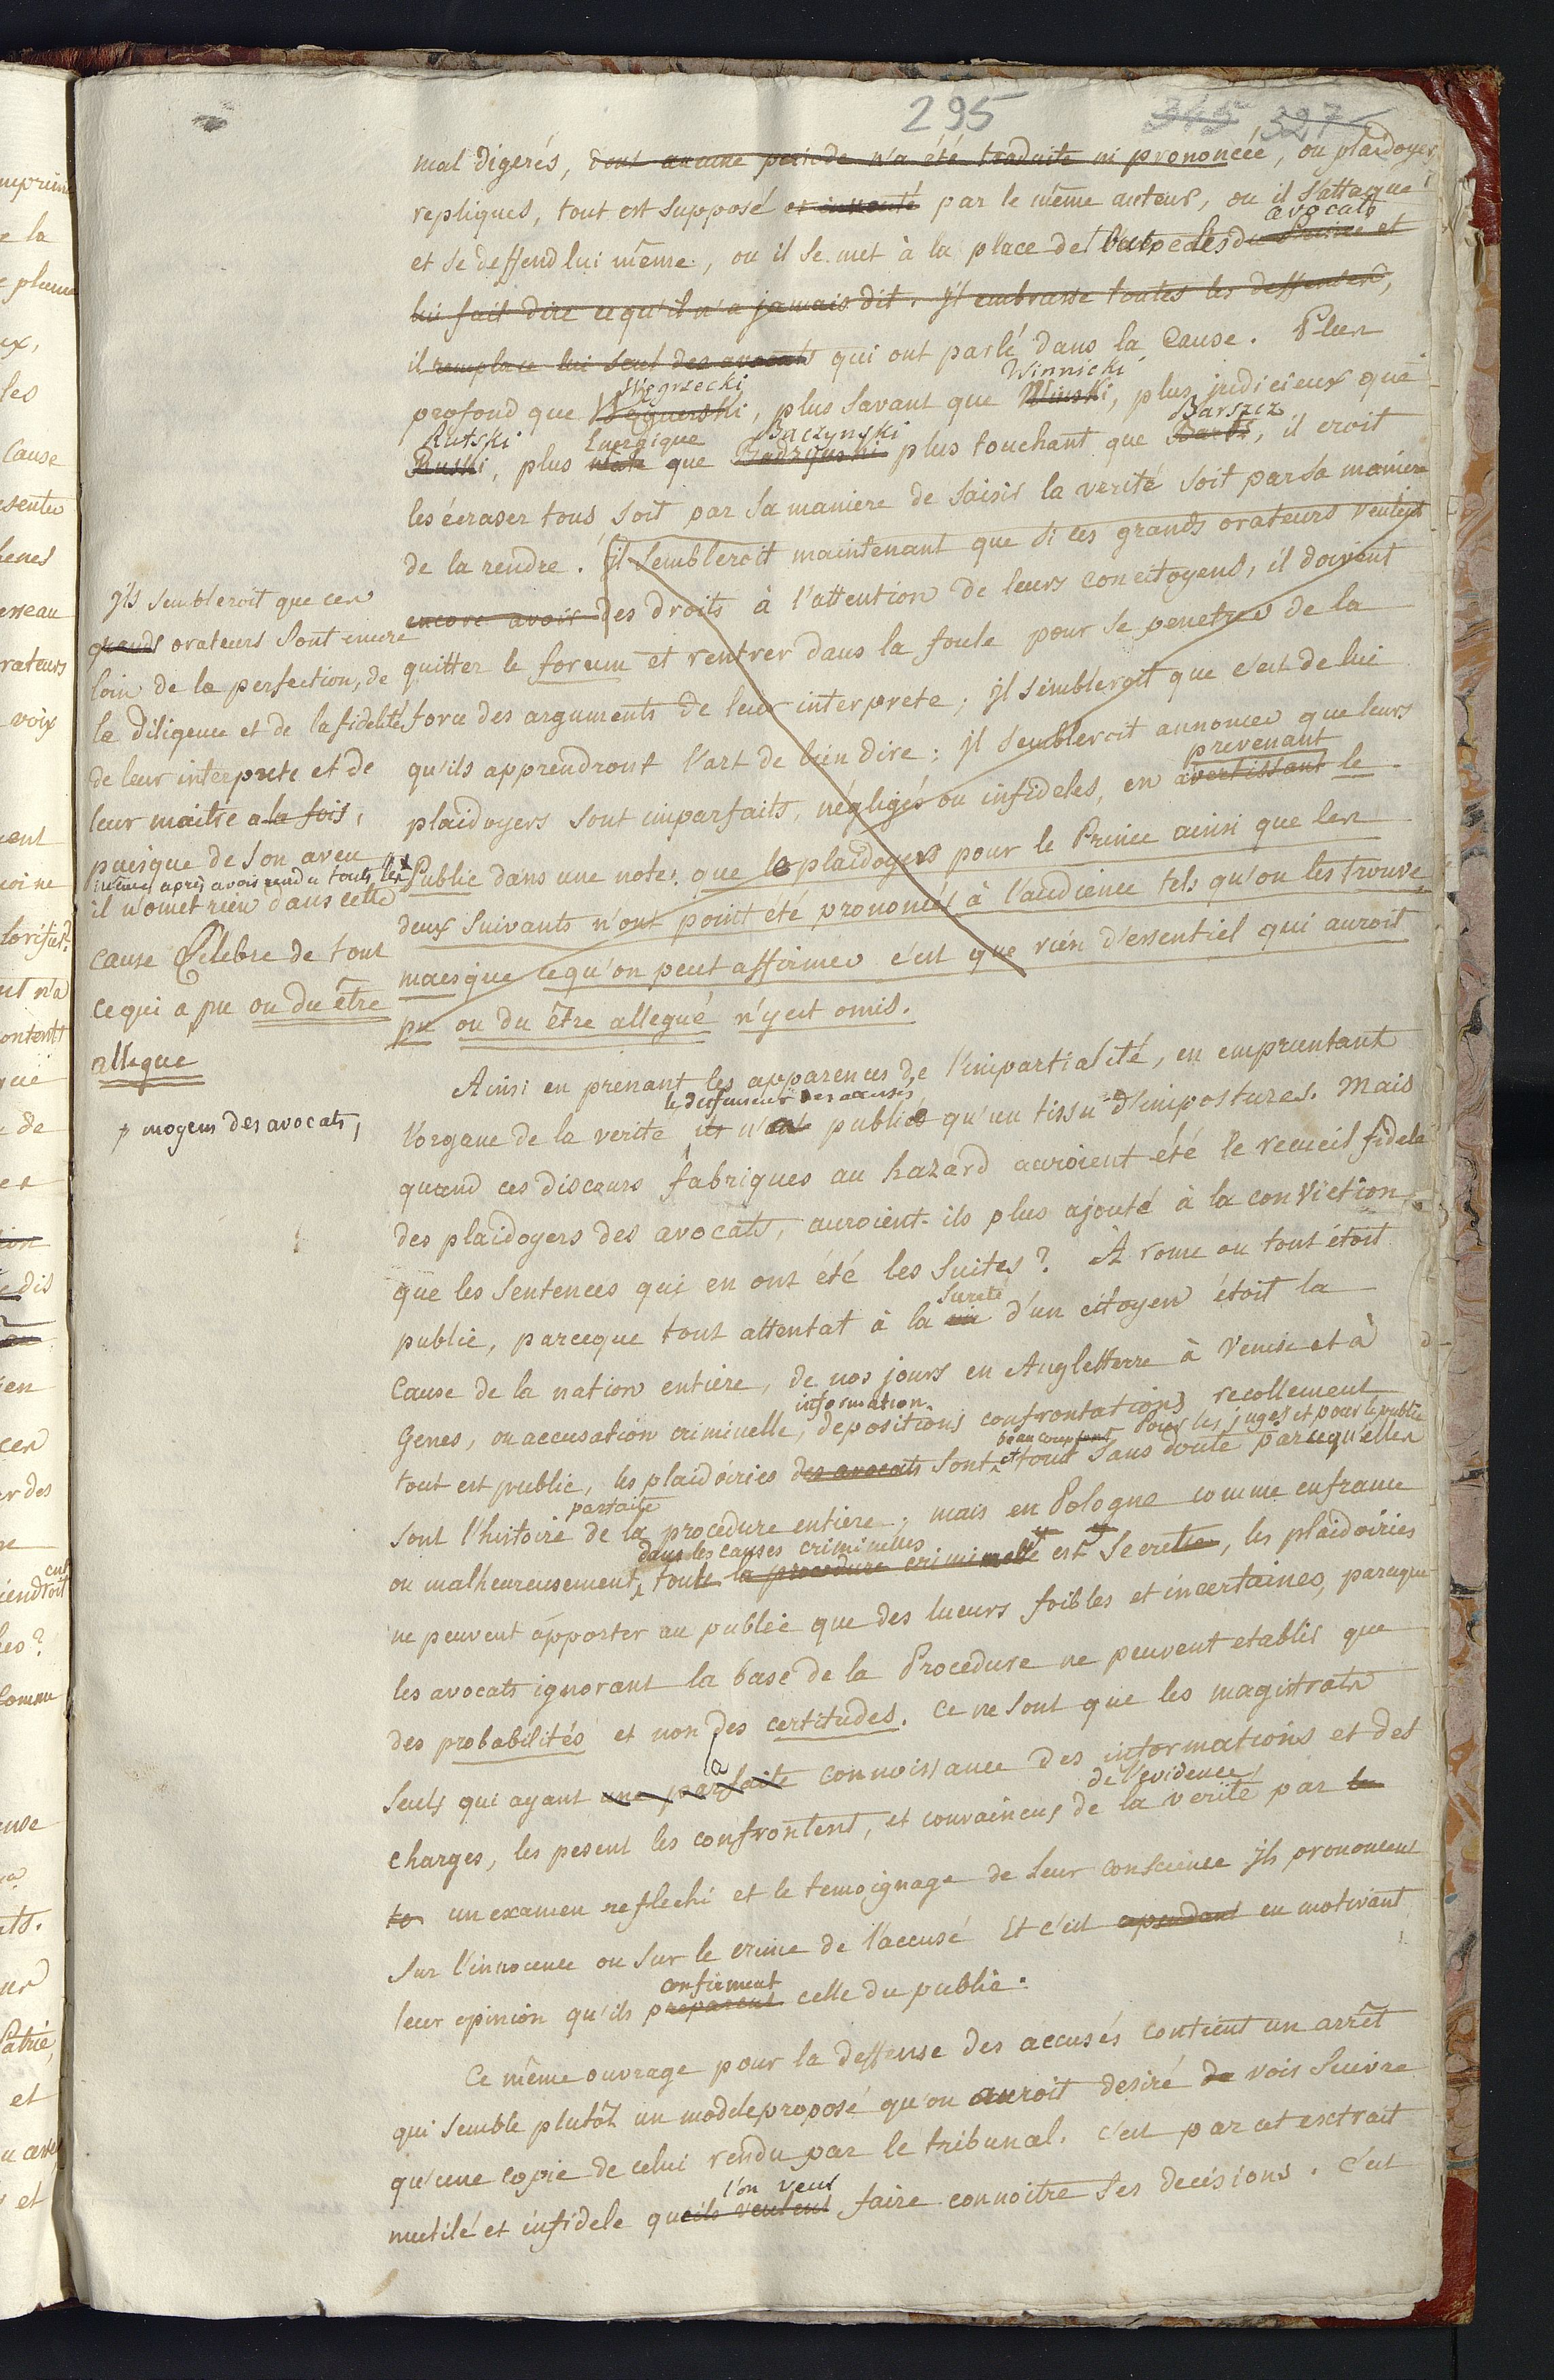 295 345 327
mal digerés, dont aucune periode n'a été traduite ni prononcée, ou plaidoyer
repliques, tout est supposé et inventé par le même auteur, ou il s'attaque
avocats
et se deffend lui même, ou il se met à la place de tous les du Prince et
lui fait dire ce qu'il n'a jamais dit. Il embrasse toutes les deffenses,
il remplace lui seul des avocats qui ont parlé dans la Cause. Plus
Wegrzecki Winnicki
profond que Wegnerski, plus savant que Winski, plus judicieux que
Rutski Energique Baczynski Barszcz
Ruski, plus que Badzynski plus touchant que Barts, il croit
les écraser tous soit par sa maniere de saisir la verité soit par sa maniere
de la rendre. il sembleroit maintenant que si ces grands orateurs veulent
encore avoir des droits à l'attention de leurs concitoyens, il doivent
quitter le forum et rentrer dans la foule pour se penetrer de la
force des arguments de leur interprete; il sembleroit que c'est de lui
qu'ils apprendront l'art de bien dire; il sembleroit annoncer que leurs
prevenant
plaidoyers sont imparfaits, négligés ou infideles, en avertissant le
Public dans une note. que le plaidoyers pour le Prince ainsi que les
deux suivants n'ont point été prononcés à l'audience tels qu'on les trouve
mais que ce qu'on peut affirmer c'est que rien d'essentiel qui auroit
pu ou du être allegué n'y est omis.
Ils sembleroit que ces
grands orateurs sont encore
loin de la perfection, de
la diligence et de la fidelité
de leur interprete et de
leur maitre a la fois,
puisque de son aveu
même, après avoir rendu touts les
il n'omet rien dans cette
cause Célebre de tout
ce qui a pu ou du être
allegue
moyens des avocats,
Ainsi en prenant les apparences de l'impartialité, en empruntant
le deffenseur des accusés
l'organe de la verite ils n'a publié qu'un tissu d'impostures. Mais
quand ces discours fabriques au hazard auroient été le recueil fidele
des plaidoyers des avocats, auroient-ils plus ajouté à la conviction
que les sentences qui en ont été les suites? A rome ou tout étoit
sureté
public, parceque tout attentat à la vie d'un citoyen étoit la
Cause de la nation entière, de nos jours en Angletterre à Venise et à
information
Genes, ou accusation criminelle, depositions confrontations recollement
beaucoup pour les juges et pour le public
tout est public, les plaidoiries des avocats sont et tout sans doute parcequ'elles
parfaite
sont l'histoire de la procedure entiere; mais en Pologne comme en france
dans les causes criminelles
ou malheureusement, toute la procedure criminelle est secrette, les plaidoiries
ne peuvent apporter au public que des lueurs foibles et incertaines, parceque
les avocats ignorant la base de la Procedure ne peuvent etablir que
des probabilités et non des certitudes. Ce ne sont que les magistrats
la
seuls qui ayant une parfaite connoissance des informations et des
de l'evidence
charges, les pesent les confrontent, et convaincus de la verité par le
to un examen reflechi et le temoignage de leur conscience ils prononcent
sur l'innocence ou sur le crime de l'accusé Et c'est cependant en motivant
confirment
leur opinion qu'ils preparent celle du public.
Ce même ouvrage pour la deffense des accusés contient un arrêt
qui semble plutôt un modele proposé qu'on auroit desiré de voir suivre
qu'une copie de celui rendu par le tribunal. c'est par cet exctrait
l'on veut
mutilé et infidele qu'ils veulent faire connoitre ses decisions. C'est